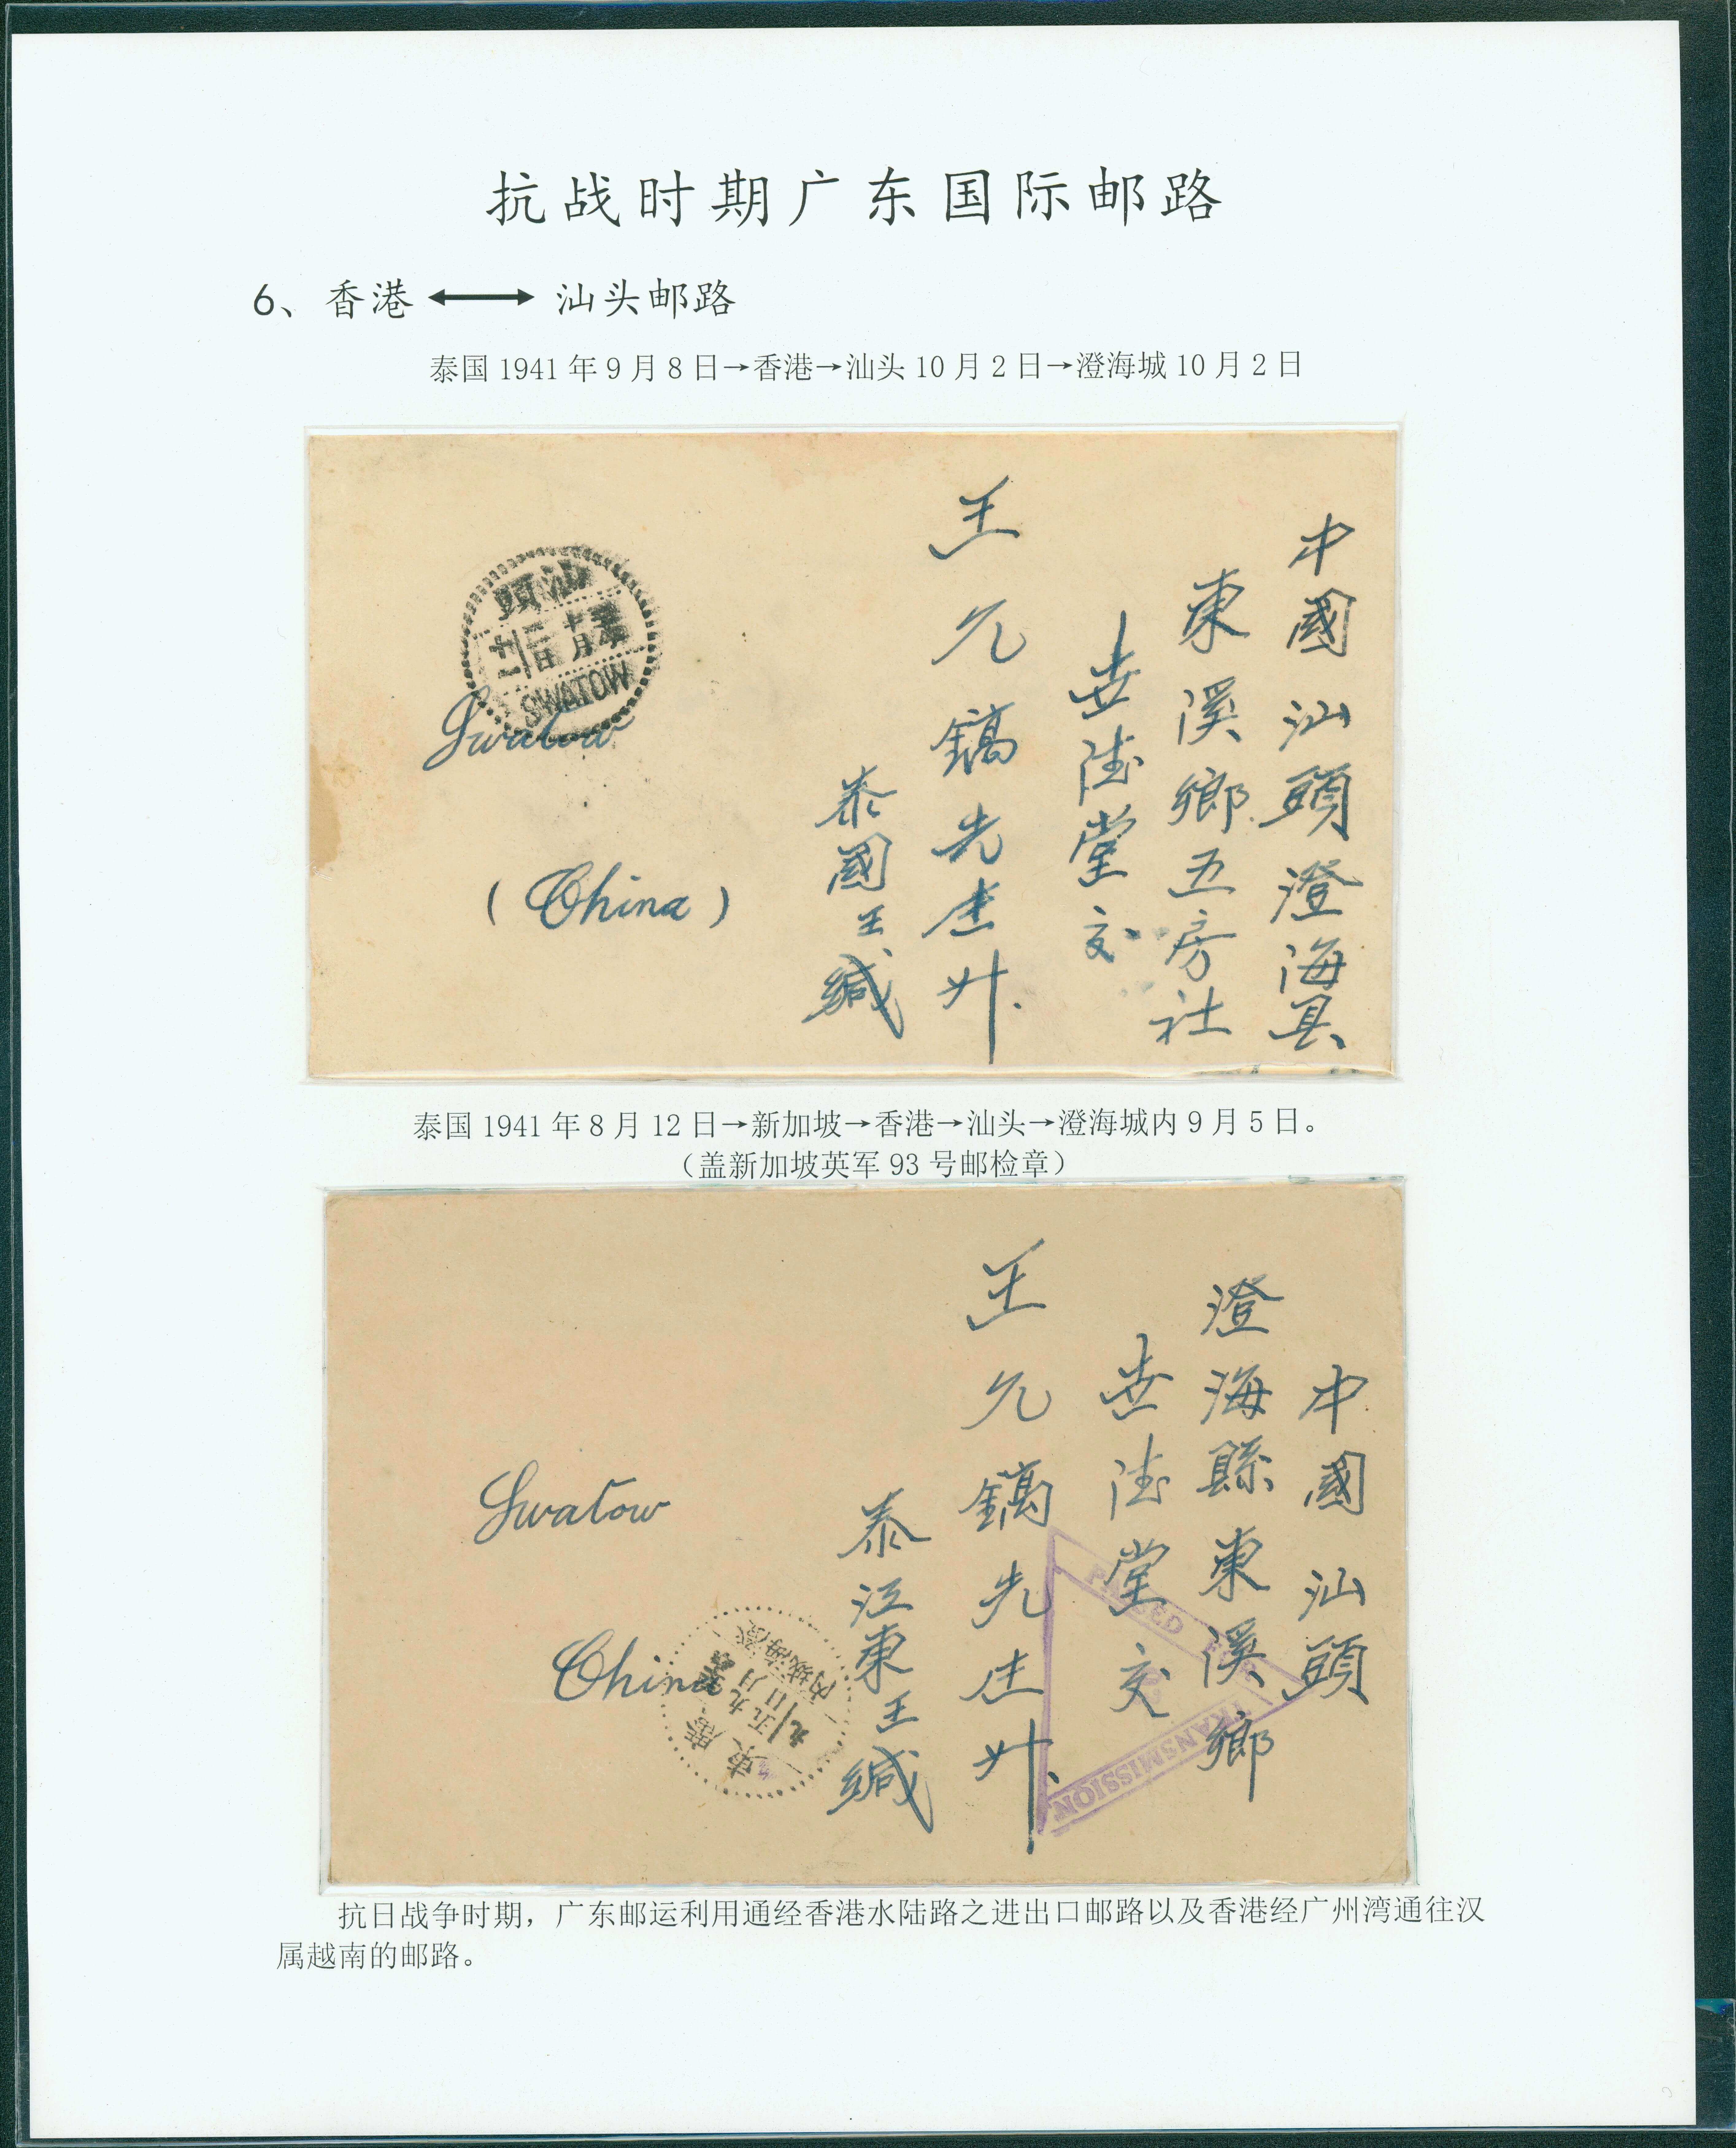 抗战时期广东国际邮路
6、香港 ⟷ 汕头邮路
泰国 1941 年 9 月 8 日→香港→汕头 10 月 2 日→澄海城 10 月 2 日
中國汕頭澄海县
東溪鄉五房社
堂交
王允鎬先生升
泰國王緘
汕頭
SWATOW
Swatow
(China)
泰国 1941 年 8 月 12 日→新加坡→香港→汕头→澄海城内 9 月 5 日。
（盖新加坡英军 93 号邮检章）
中國汕頭
澄海縣東溪鄉
堂交
王允鎬先生升
泰江東王緘
Swatow
China
廣東
澄海城內
PASSED FOR
TRANSMISSION
抗日战争时期，广东邮运利用通经香港水陆路之进出口邮路以及香港经广州湾通往汉
属越南的邮路。